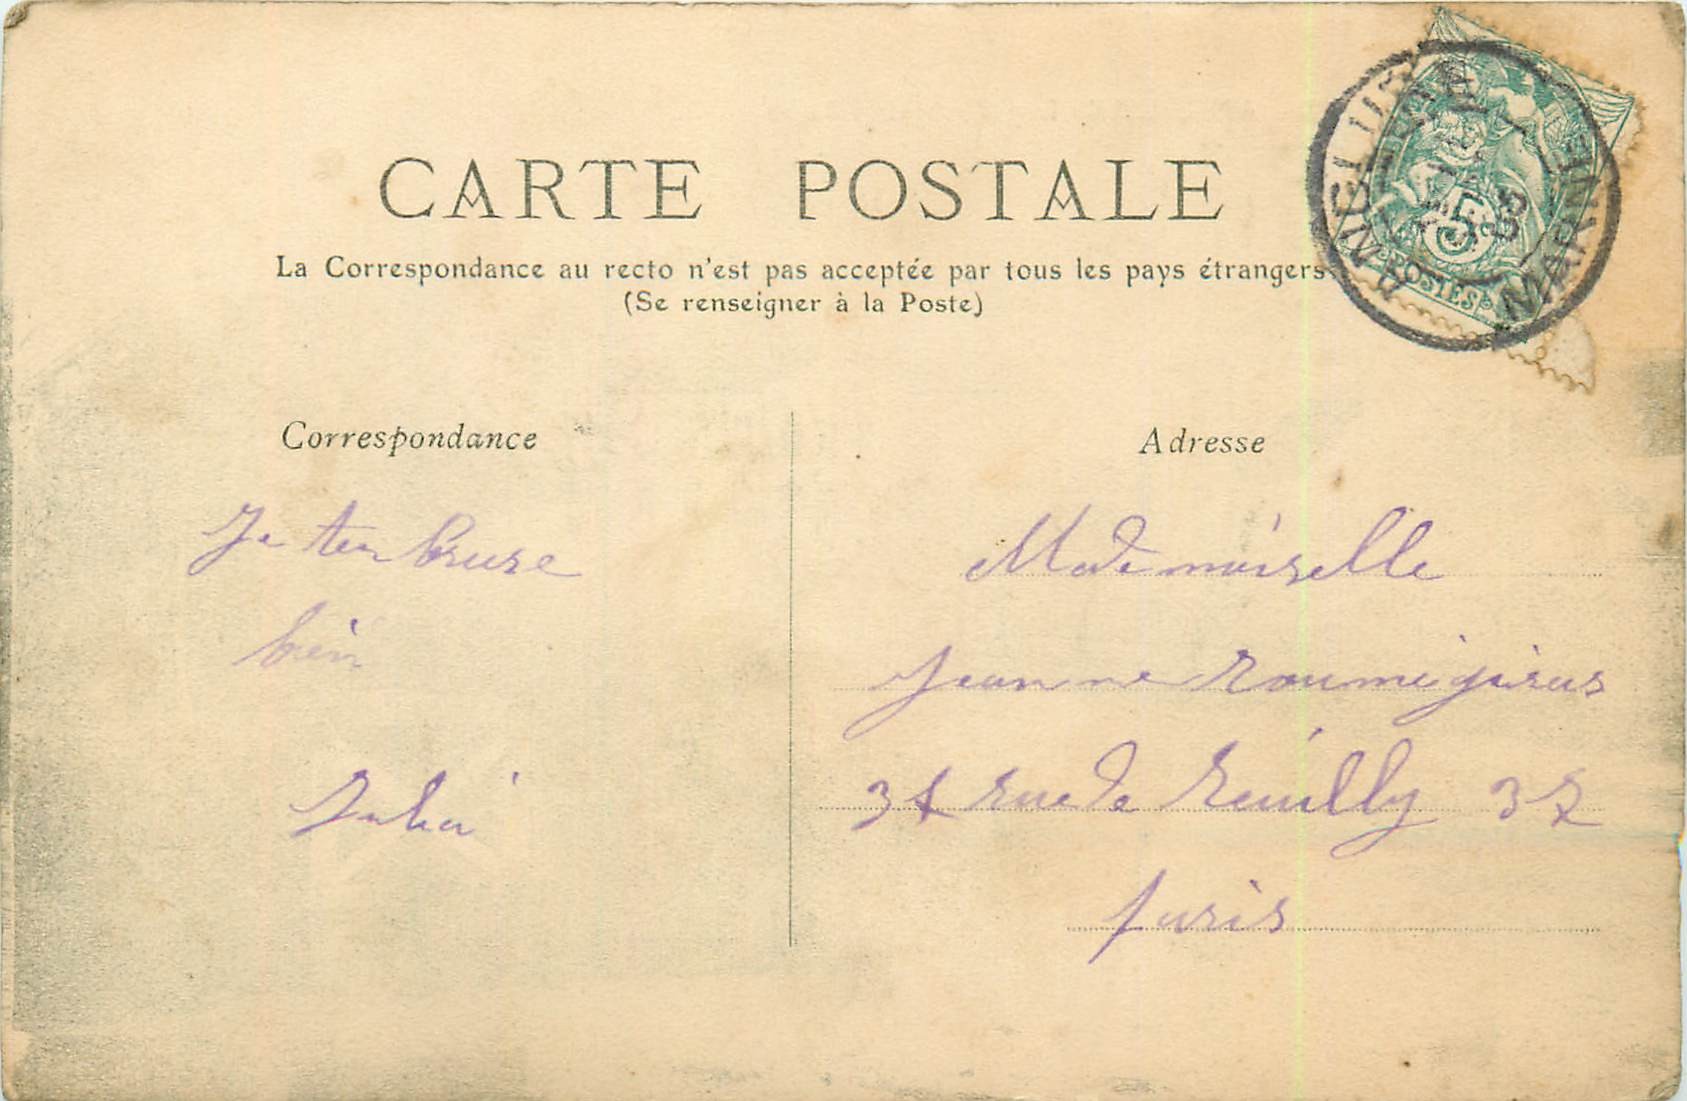 CARTE POSTALE
La Correspondance au recto n'est pas acceptée par tous les pays étrangers
(Se renseigner à la Poste)
5
POSTES
MARNE
Correspondance
Adresse
Je
bien
Mademoiselle
Jeanne
rue de Reuilly 37
Paris